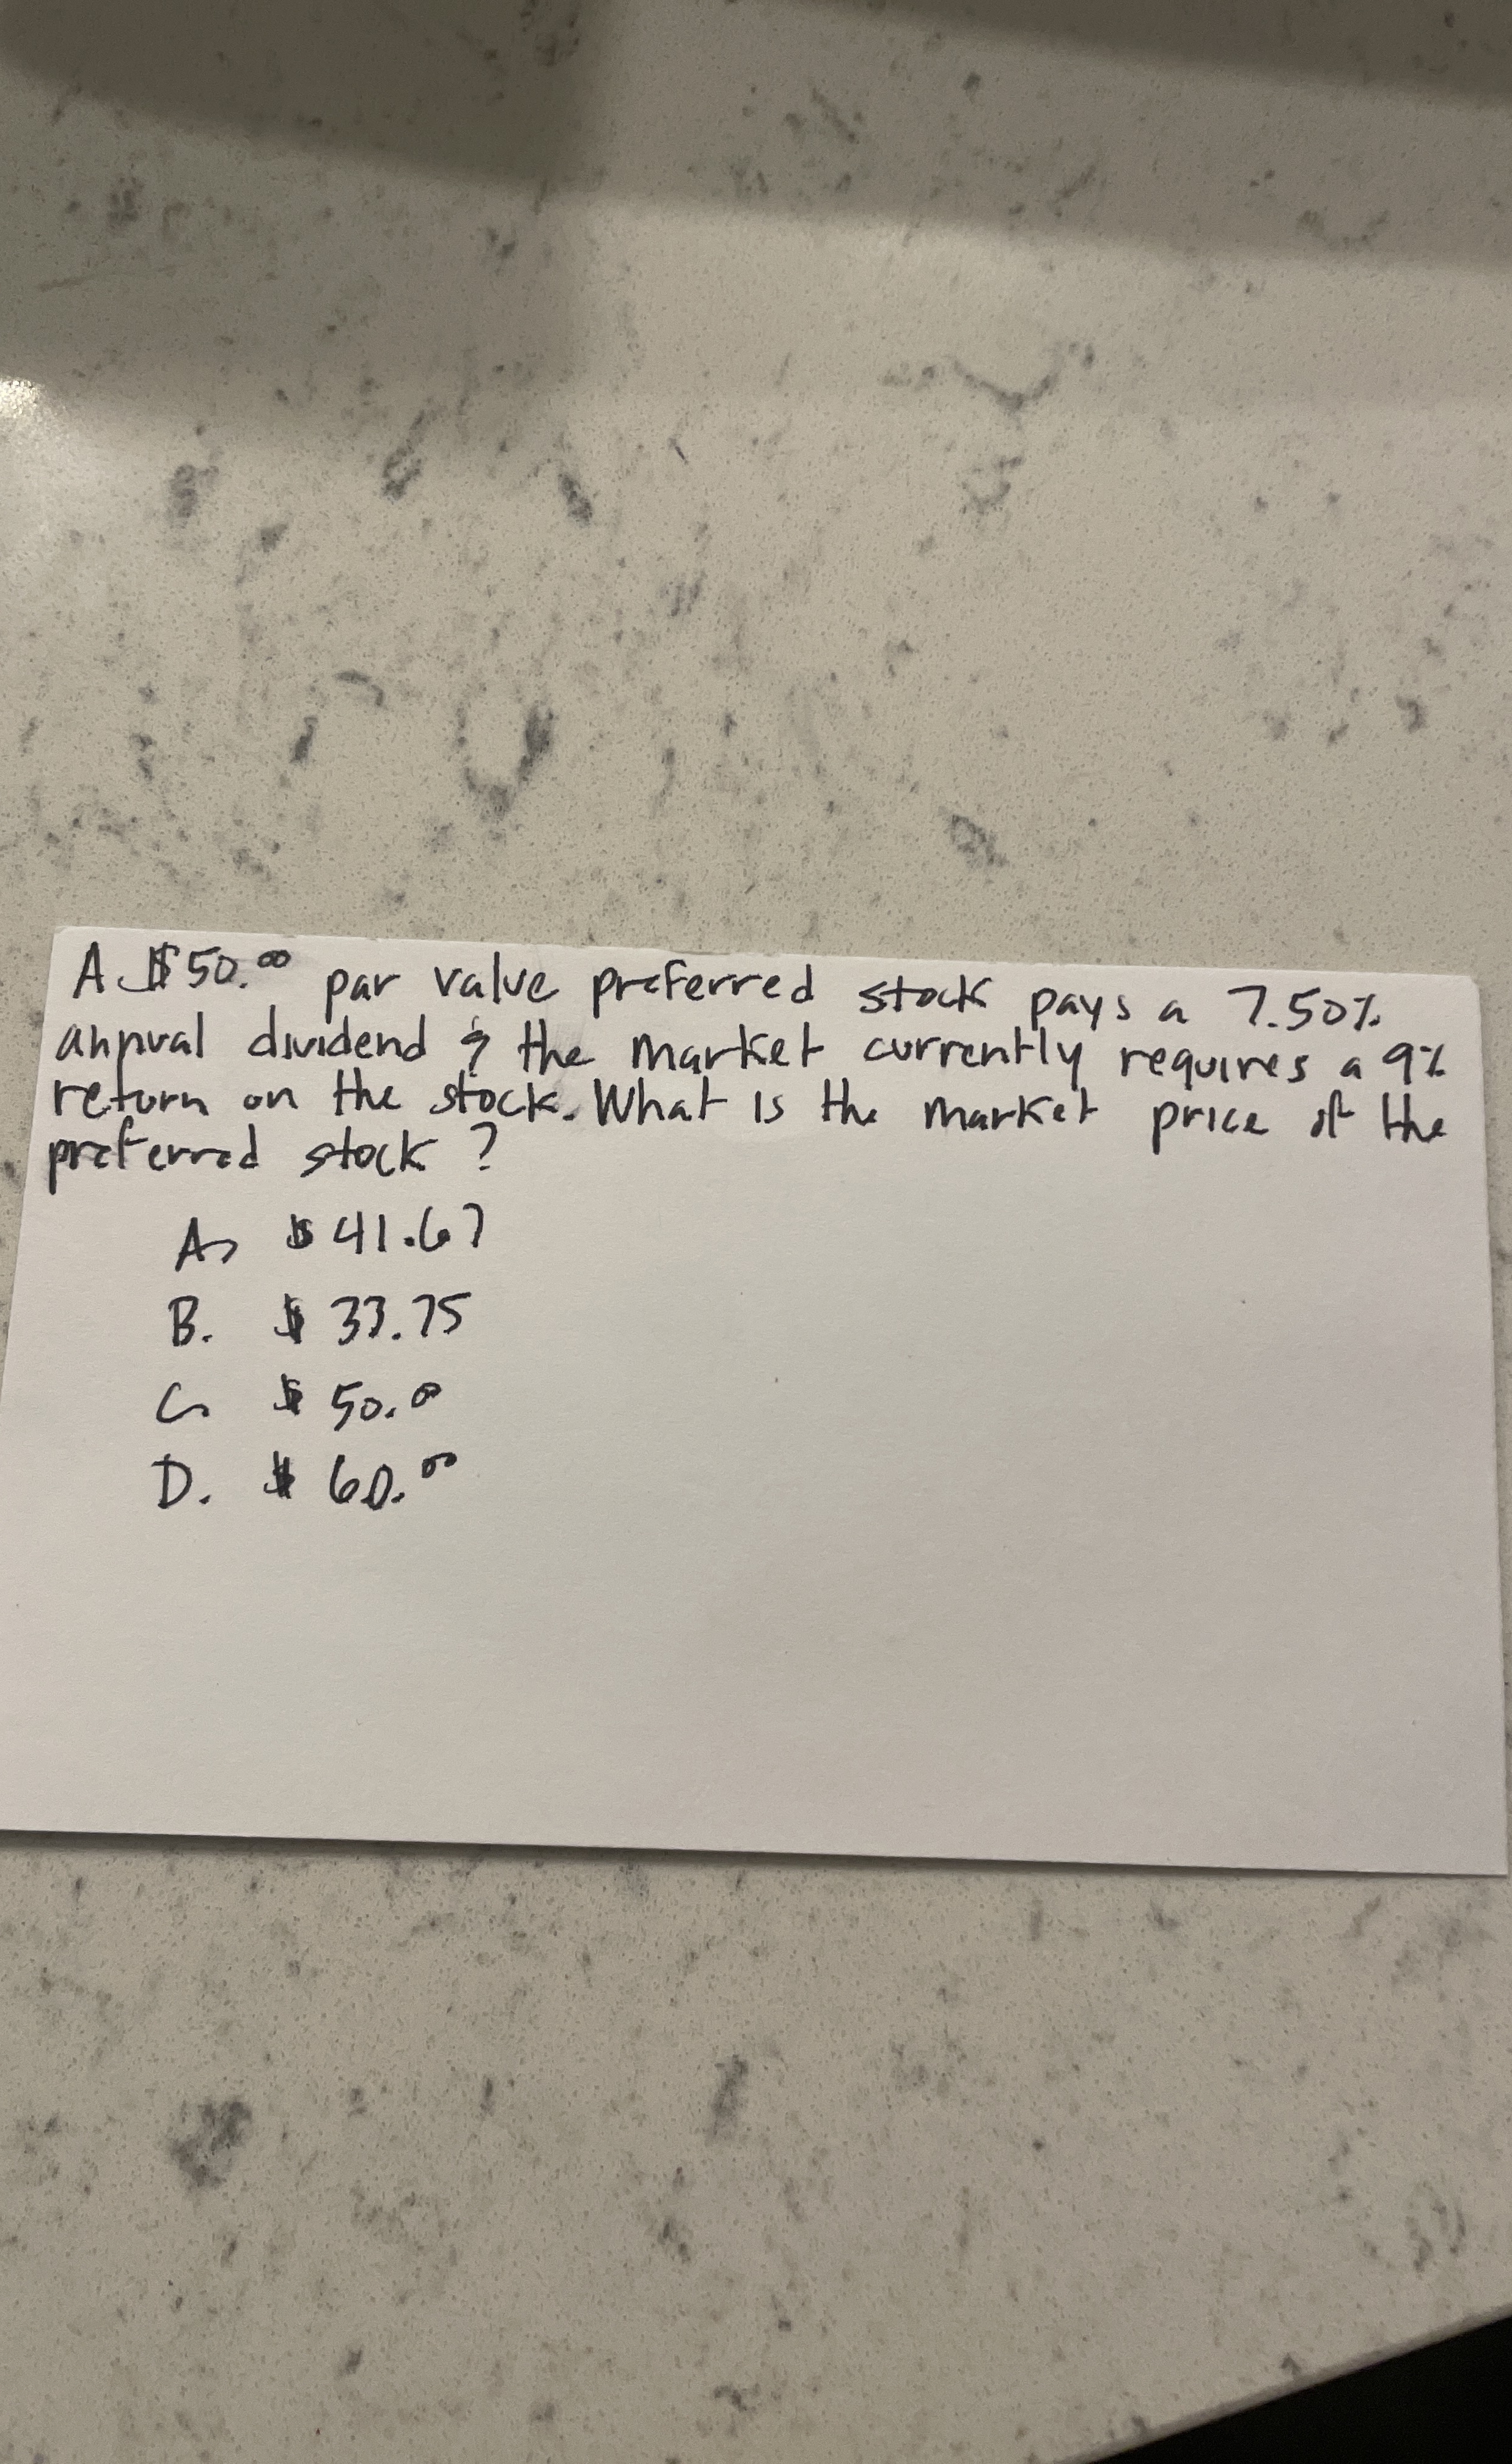 A $50.00 par value preferred stock pays a 7.50%
annual dividend & the market currently requires a 9%
return on the stock. What is the market price of the
preferred stock?
A. $41.67
B. $33.75
C. $50.00
D. $60.00